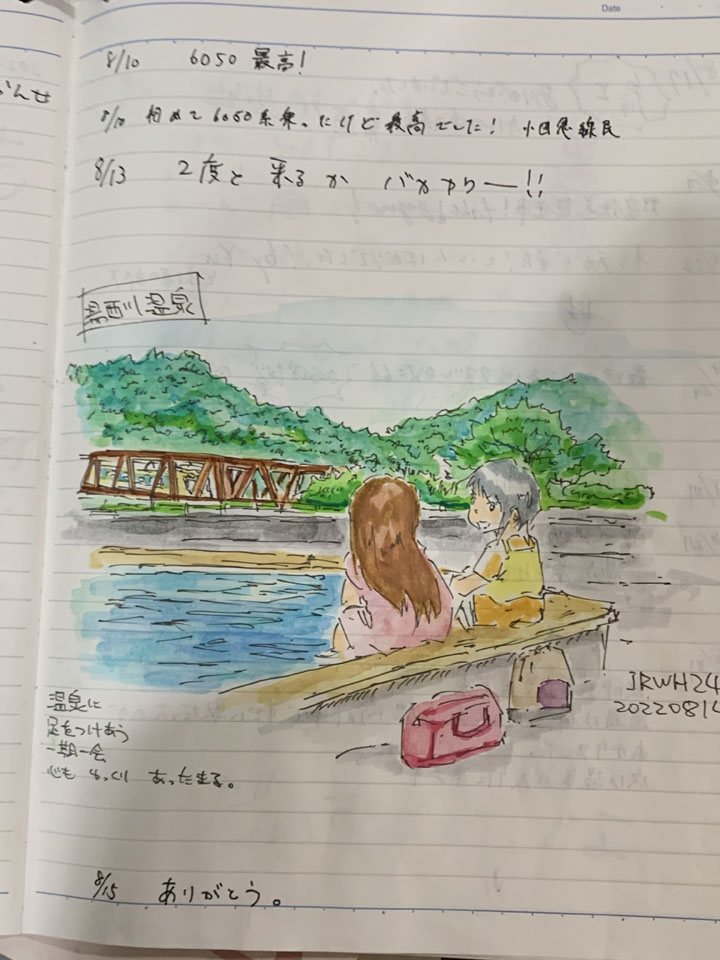 Date
んせ
8/10 6050 最高!
8/10 初めて6050系乗ったけど最高でした! 小田急線民
8/13 2度と来るかバカヤロー!!
湯西川温泉
JRWH24
20220814
温泉に
足をつけあう
一期一会
心もゆっくりあったまる。
8/15 ありがとう。